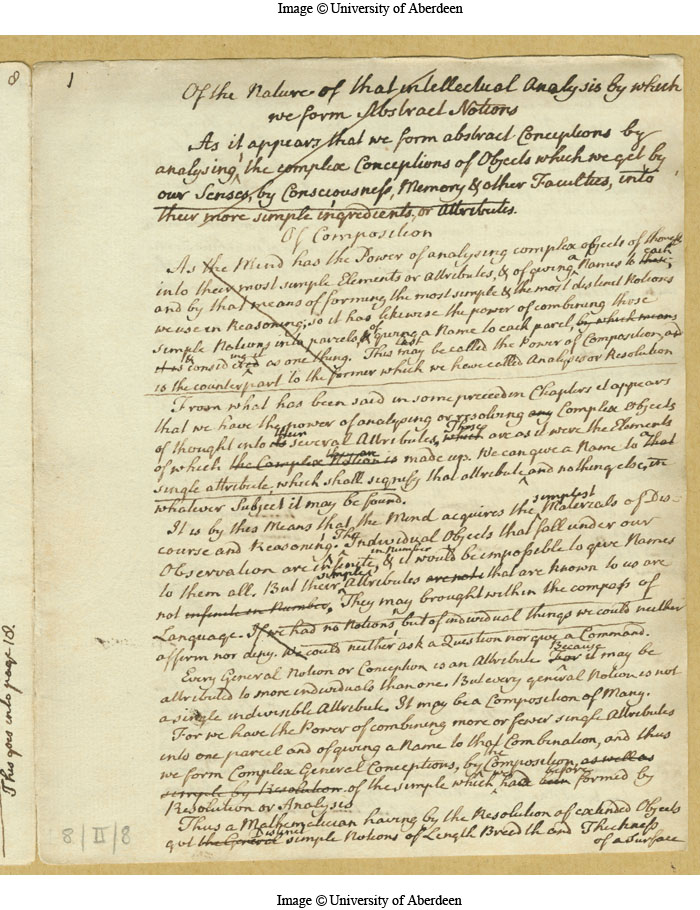 Image © University of Aberdeen
8
1
Of the Nature of that intellectual Analysis by which
we form Abstract Notions
As it appears that we form abstract Conceptions by
analysing the complex Conceptions of Objects which we get by
our Senses, by Consciousness, Memory & other Faculties, into
their more simple ingredients, or attributes.
Of Composition
As the Mind has the Power of analysing complex objects of thought
into their most simple Elements or Attributes, & of giving a Names to each
and by that means of forming the most simple & the most distinct Notions
we use in Reasoning; so it has likewise the power of combining those
simple Notions into parcels, & of giving a Name to each parcel, by which means
it is & considering it as one thing. This last may be called the Power of Composition, and
is the counterpart to the former which we have called Analysis or Resolution
From what has been said in some precedin Chapters it appears
that we have the power of analysing or resolving any Complex Objects
of thought into its their several Attributes, which These are as it were the Elements
of which the Complex Notion is they are made up. We can give a Name to That
single attribute, which shall signify that attribute and nothing else, in
whatever Subject it may be found.
It is by this Means that the Mind acquires the simplest Materials of Dis=
course and Reasoning. The Individual Objects that fall under our
Observation are infinite, in number & it would be impossible to give Names
to them all. But their simple Attributes are not that are known to us are
not infinite in Number, They may brought within the compass of
Language. If we had no Notions but of individual things we could neither
affirm nor deny. We could neither ask a Question nor give a Command.
Every General Notion or Conception is an Attribute For Because it may be
attributed to more individuals than one. But every general Notion is not
a single indivisible Attribute. It may be a Composition of Many.
For we have the Power of combining more or fewer single Attributes
into one parcel and of giving a Name to that Combination, and thus
we form Complex General Conceptions, by the Composition, as well as
simple by Resolution of the simple which we had been before formed by
Resolution or Analysis
Thus a Mathematician having by the Resolution of extended Objects
got the General Distinct simple Notions of Length Breedth and Thickness
of a Surface
This goes into page 18.
8/II/8
Image © University of Aberdeen